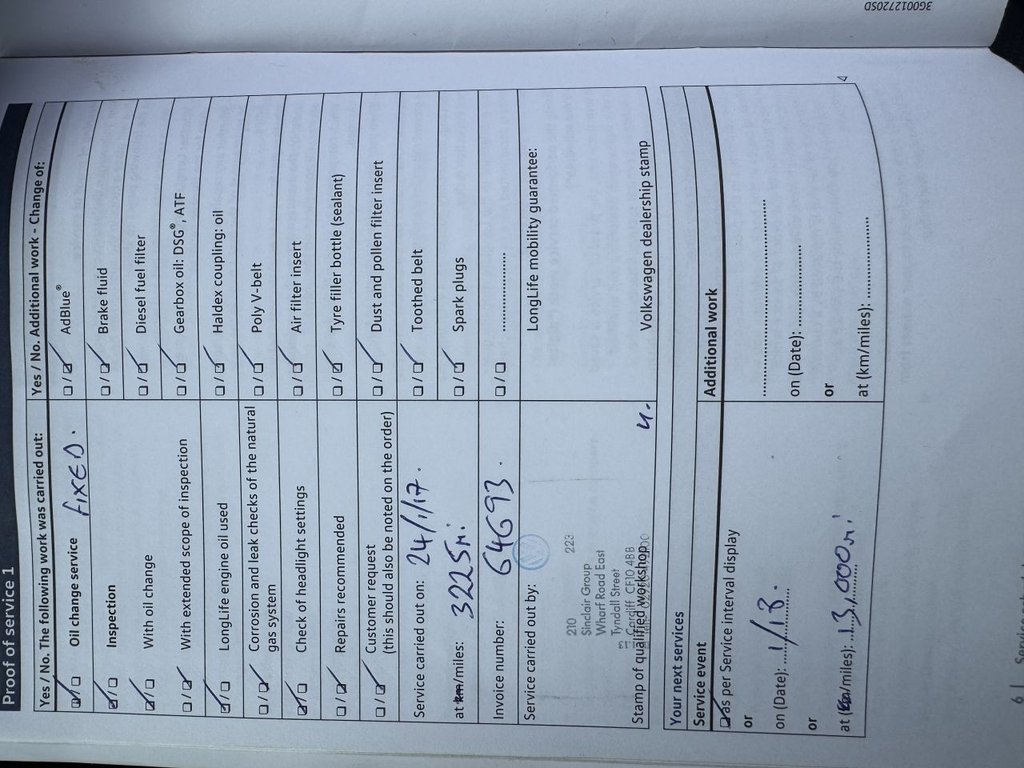 Proof of service 1
Yes / No. The following work was carried out:
Oil change service FIXED.
Inspection
With oil change
With extended scope of inspection
LongLife engine oil used
Corrosion and leak checks of the natural
gas system
Check of headlight settings
Repairs recommended
Customer request
(this should also be noted on the order)
Service carried out on: 24/1/17.
at km/miles: 3225mi
Invoice number: 64693.
Service carried out by:
210 223
Sinclair Group
Wharf Road East
Tyndall Street
Cardiff CF10 4BB
Stamp of qualified workshop
Yes / No. Additional work - Change of:
AdBlue®
Brake fluid
Diesel fuel filter
Gearbox oil: DSG®, ATF
Haldex coupling: oil
Poly V-belt
Air filter insert
Tyre filler bottle (sealant)
Dust and pollen filter insert
Toothed belt
Spark plugs
LongLife mobility guarantee:
Volkswagen dealership stamp
Your next services
Service event
as per Service interval display
or
on (Date): 1/18.
or
at (km/miles): 13,000mi
Additional work
on (Date):
or
at (km/miles):
3G0012720SD
6 |